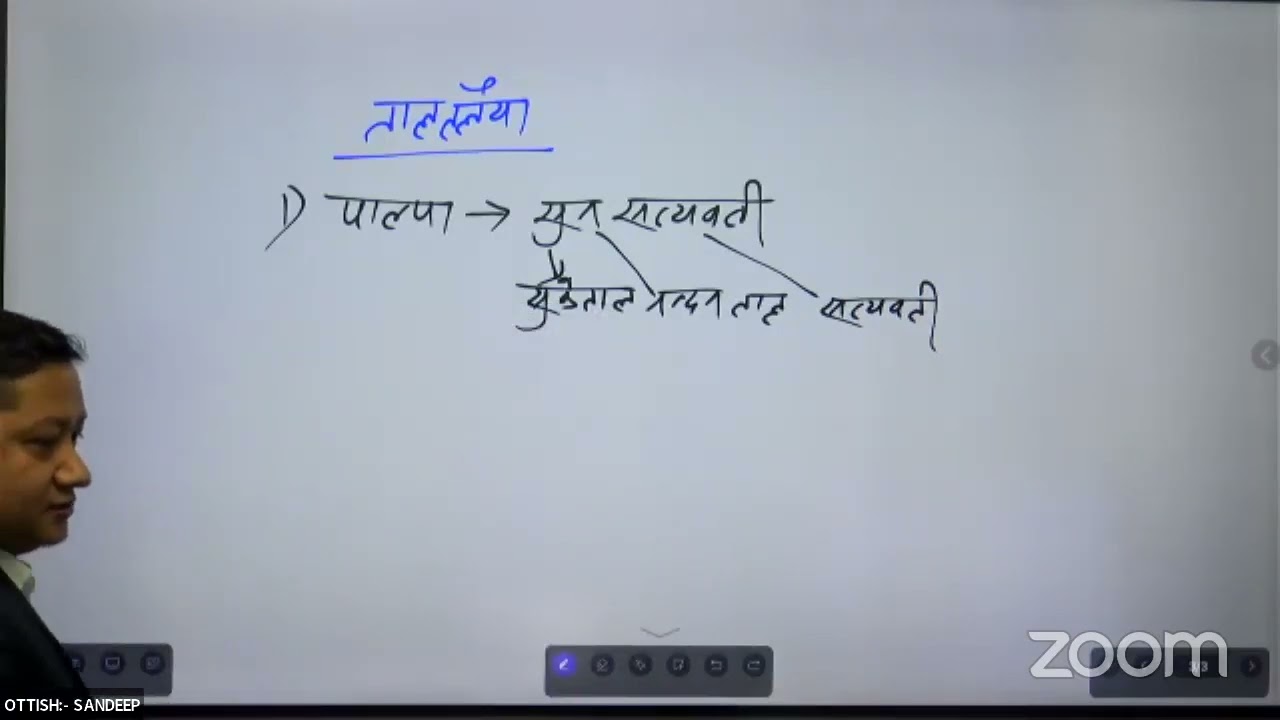 तालतलैया
1) पाल्पा → सुन सत्यवती
सुकेताल नन्दन ताल सत्यवती
zoom
3/3
OTTISH:- SANDEEP